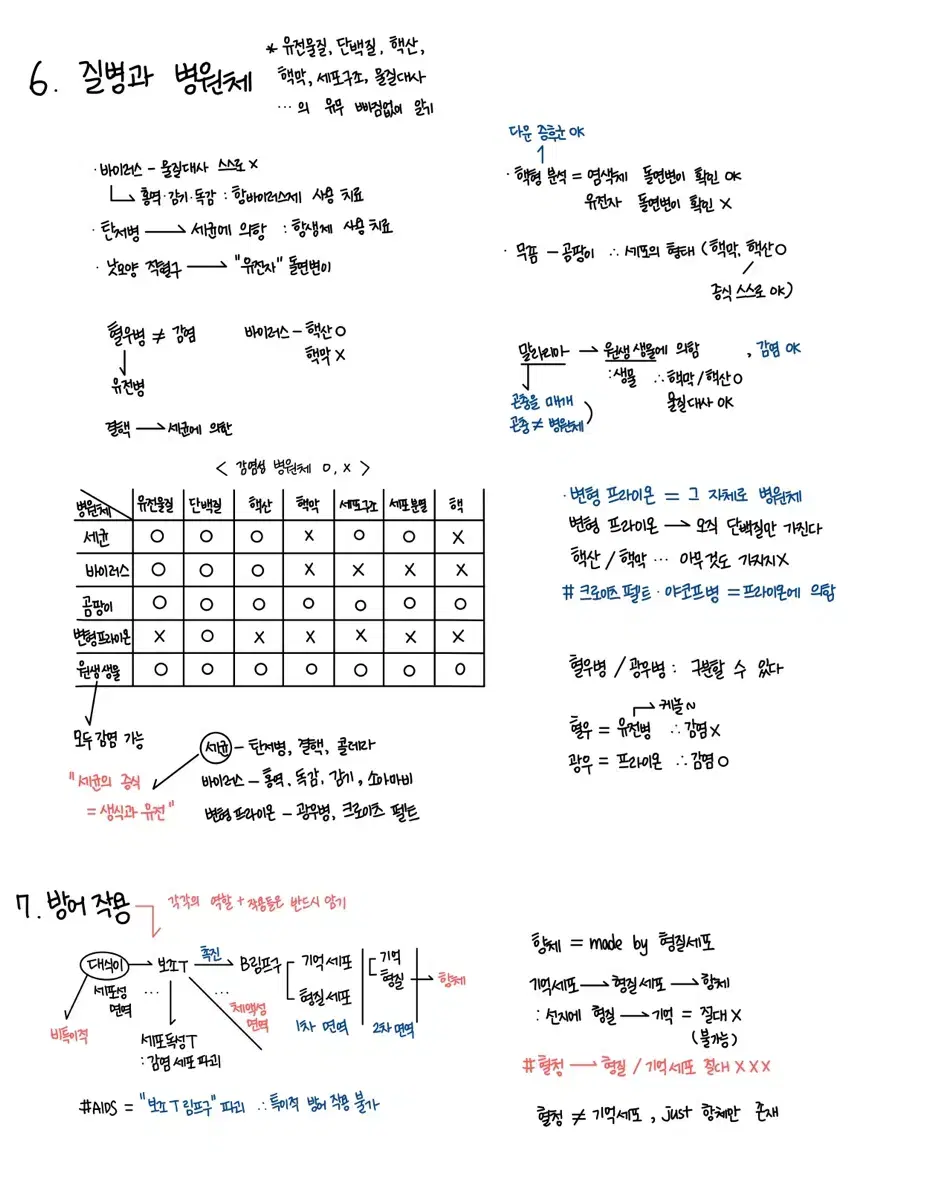 6. 질병과 병원체
* 유전물질, 단백질, 핵산,
핵막, 세포구조, 물질대사
… 의 유무 빠짐없이 알기
· 바이러스 – 물질대사 스스로 X
홍역·감기·독감 : 항바이러스제 사용 치료
· 탄저병 → 세균에 의함 : 항생제 사용 치료
· 낫모양 적혈구 → "유전자" 돌연변이
혈우병 ≠ 감염
유전병
바이러스 – 핵산 O
핵막 X
결핵 → 세균에 의한
다운 증후군 OK
· 핵형 분석 = 염색체 돌연변이 확인 OK
유전자 돌연변이 확인 X
· 무좀 – 곰팡이 ∴ 세포의 형태 (핵막, 핵산 O
증식 스스로 OK)
말라리아 → 원생생물에 의함 , 감염 OK
:생물 ∴ 핵막/핵산 O
물질대사 OK
곤충을 매개
곤충 ≠ 병원체
< 감염성 병원체 O, X >
병원체 유전물질 단백질 핵산 핵막 세포구조 세포분열 핵
세균 O O O X O O X
바이러스 O O O X X X X
곰팡이 O O O O O O O
변형프라이온 X O X X X X X
원생생물 O O O O O O O
모두 감염 가능
세균 – 탄저병, 결핵, 콜레라
바이러스 – 홍역, 독감, 감기, 소아마비
변형 프라이온 – 광우병, 크로이츠 펠트
"세균의 증식
= 생식과 유전"
· 변형 프라이온 = 그 자체로 병원체
변형 프라이온 → 오직 단백질만 가진다
핵산 / 핵막 … 아무것도 가지지 X
# 크로이츠펠트·야코프병 = 프라이온에 의함
혈우병 / 광우병 : 구분할 수 있다
케놀~
혈우 = 유전병 ∴ 감염 X
광우 = 프라이온 ∴ 감염 O
7. 방어 작용
각각의 역할 + 작용들은 반드시 암기
대식이 → 보조T 촉진 → B림프구
기억세포
형질세포
기억
형질 → 항체
세포성
면역
… …
체액성
면역
1차 면역
2차 면역
비특이적
세포독성T
: 감염 세포 파괴
#AIDS = "보조 T 림프구" 파괴 ∴ 특이적 방어 작용 불가
항체 = made by 형질세포
기억세포 → 형질세포 → 항체
: 선지에 형질 → 기억 = 절대 X
(불가능)
# 혈청 → 형질 / 기억세포 절대 X X X
혈청 ≠ 기억세포 , just 항체만 존재